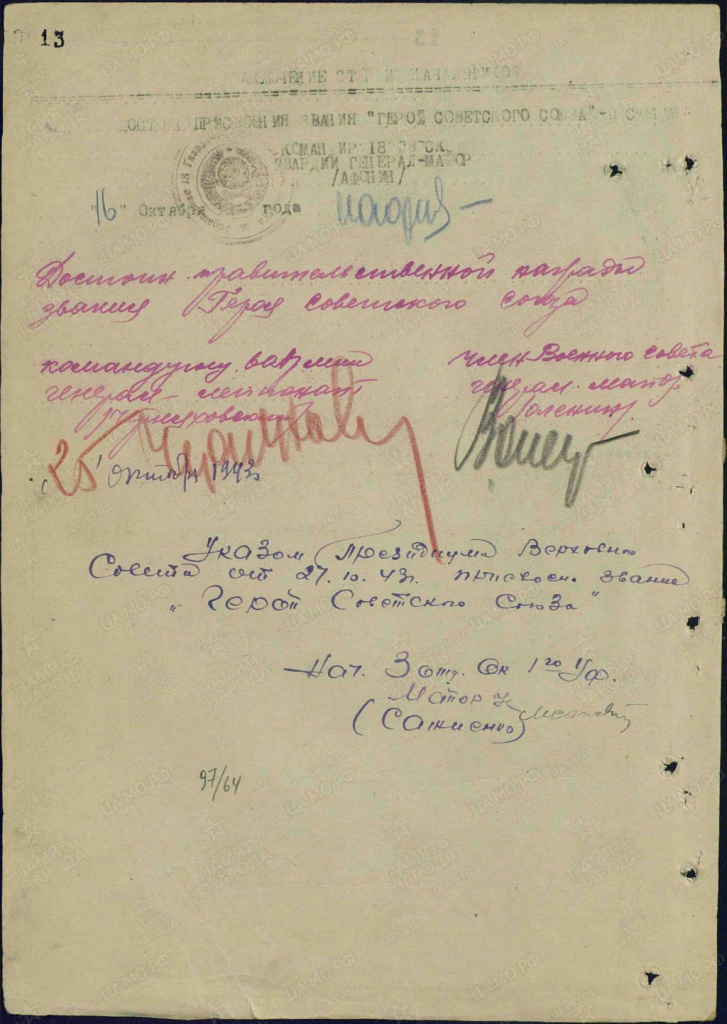 13
ЗАКЛЮЧЕНИЕ СТАРШИХ НАЧАЛЬНИКОВ
ДОСТОИН ПРИСВОЕНИЯ ЗВАНИЯ "ГЕРОЙ СОВЕТСКОГО СОЮЗА"
КОМАНДИР 18 ГВ СК
ГВАРДИИ ГЕНЕРАЛ-МАЙОР
/АФОНИН/
"16" Октября года
Достоин правительственной награды
звания Героя Советского союза
командующ. 60 Армии член Военного совета
генерал-лейтенант генерал-майор
Черняховский Оленин
"25" октября 1943г
Указом Президиума Верховного
Совета от 27.10.43г. присвоено звание
"Герой Советского Союза"
Нач. 3 отд. Ок 1го Уф.
Майор
(Сажиенко)
97/64